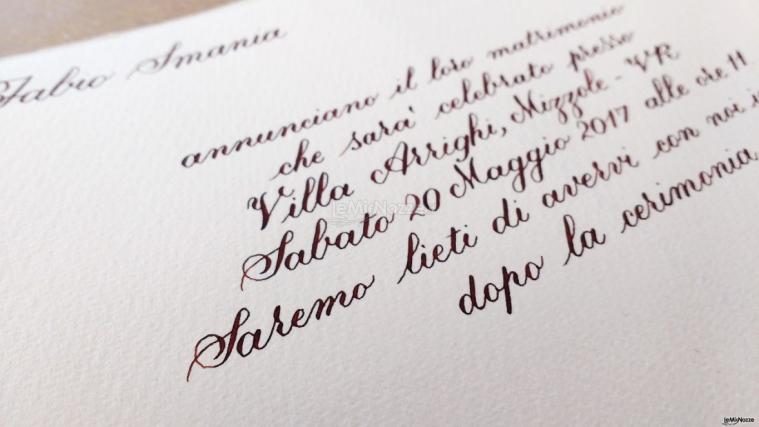 Fabio Smania
annunciano il loro matrimonio
che sara' celebrato presso
Villa Arrighi, Mizzole - VR
Sabato 20 Maggio 2017 alle ore 11
Saremo lieti di avervi con noi
dopo la cerimonia
leMieNozze
leMieNozze